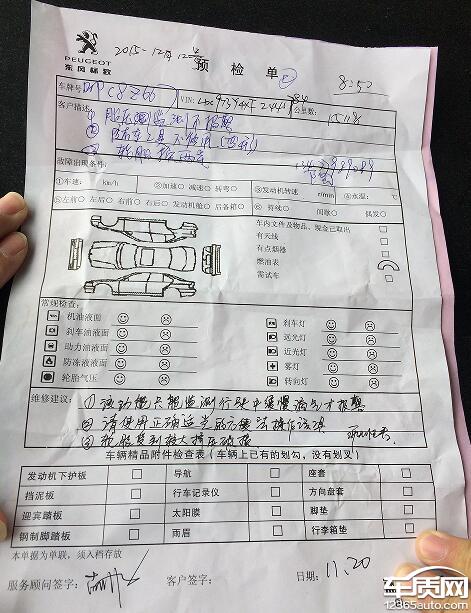 PEUGEOT
东风标致
2015-12月12
预检单
8:50
车牌号
VIN:
公里数:
客户描述:
① 胎压监测不报警
② 随车工具不使用
③ 轮胎
故障出现条件:
①车速: km/h ②加速○ 减速○ 转弯○ ③发动机转速 r/min ④水温: ℃
⑤左前○ 左后○ 右前○ 右后○ 发动机舱○ 后备箱○ ⑥ 持续○ 间歇○ 偶发○
车内文件及物品、现金已取出
有天线
有点烟器
燃油表
需试车
常规检查:
机油液面
刹车油液面
助力油液面
防冻液液面
轮胎气压
刹车灯
远光灯
近光灯
雾灯
转向灯
维修建议:
① 该功能只能监测行驶中缓慢漏气才报警
② 请使用正确
③ 轮胎受到较大挤压
车辆精品附件检查表（车辆上已有的划勾，没有划叉）
发动机下护板 导航 座套
挡泥板 行车记录仪 方向盘套
迎宾踏板 太阳膜 脚垫
钢制脚踏板 雨眉 行李箱垫
本单据为单联，须入档存放
服务顾问签字: 客户签字: 日期: 11.20
车质网
12365auto.com